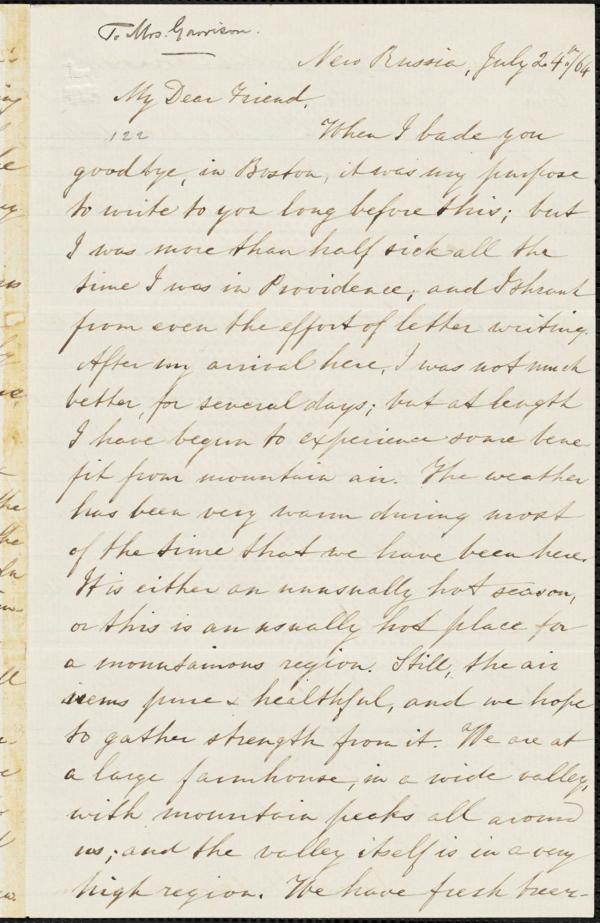 To Mrs. Garrison.
New Russia, July 24th/64
My Dear Friend,
122
When I bade you
goodbye, in Boston, it was my purpose
to write to you long before this; but
I was more than half sick all the
time I was in Providence; and I shrank
from even the effort of letter writing.
After my arrival here, I was not much
better, for several days; but at length
I have begun to experience some bene-
fit from mountain air. The weather
has been very warm during most
of the time that we have been here.
It is either an unusually hot season,
or this is an usually hot place for
a mountainous region. Still, the air
seems pure & healthful, and we hope
to gather strength from it. We are at
a large farmhouse, in a wide valley,
with mountain peaks all around
us; and the valley itself is in a very
high region. We have fresh breez-